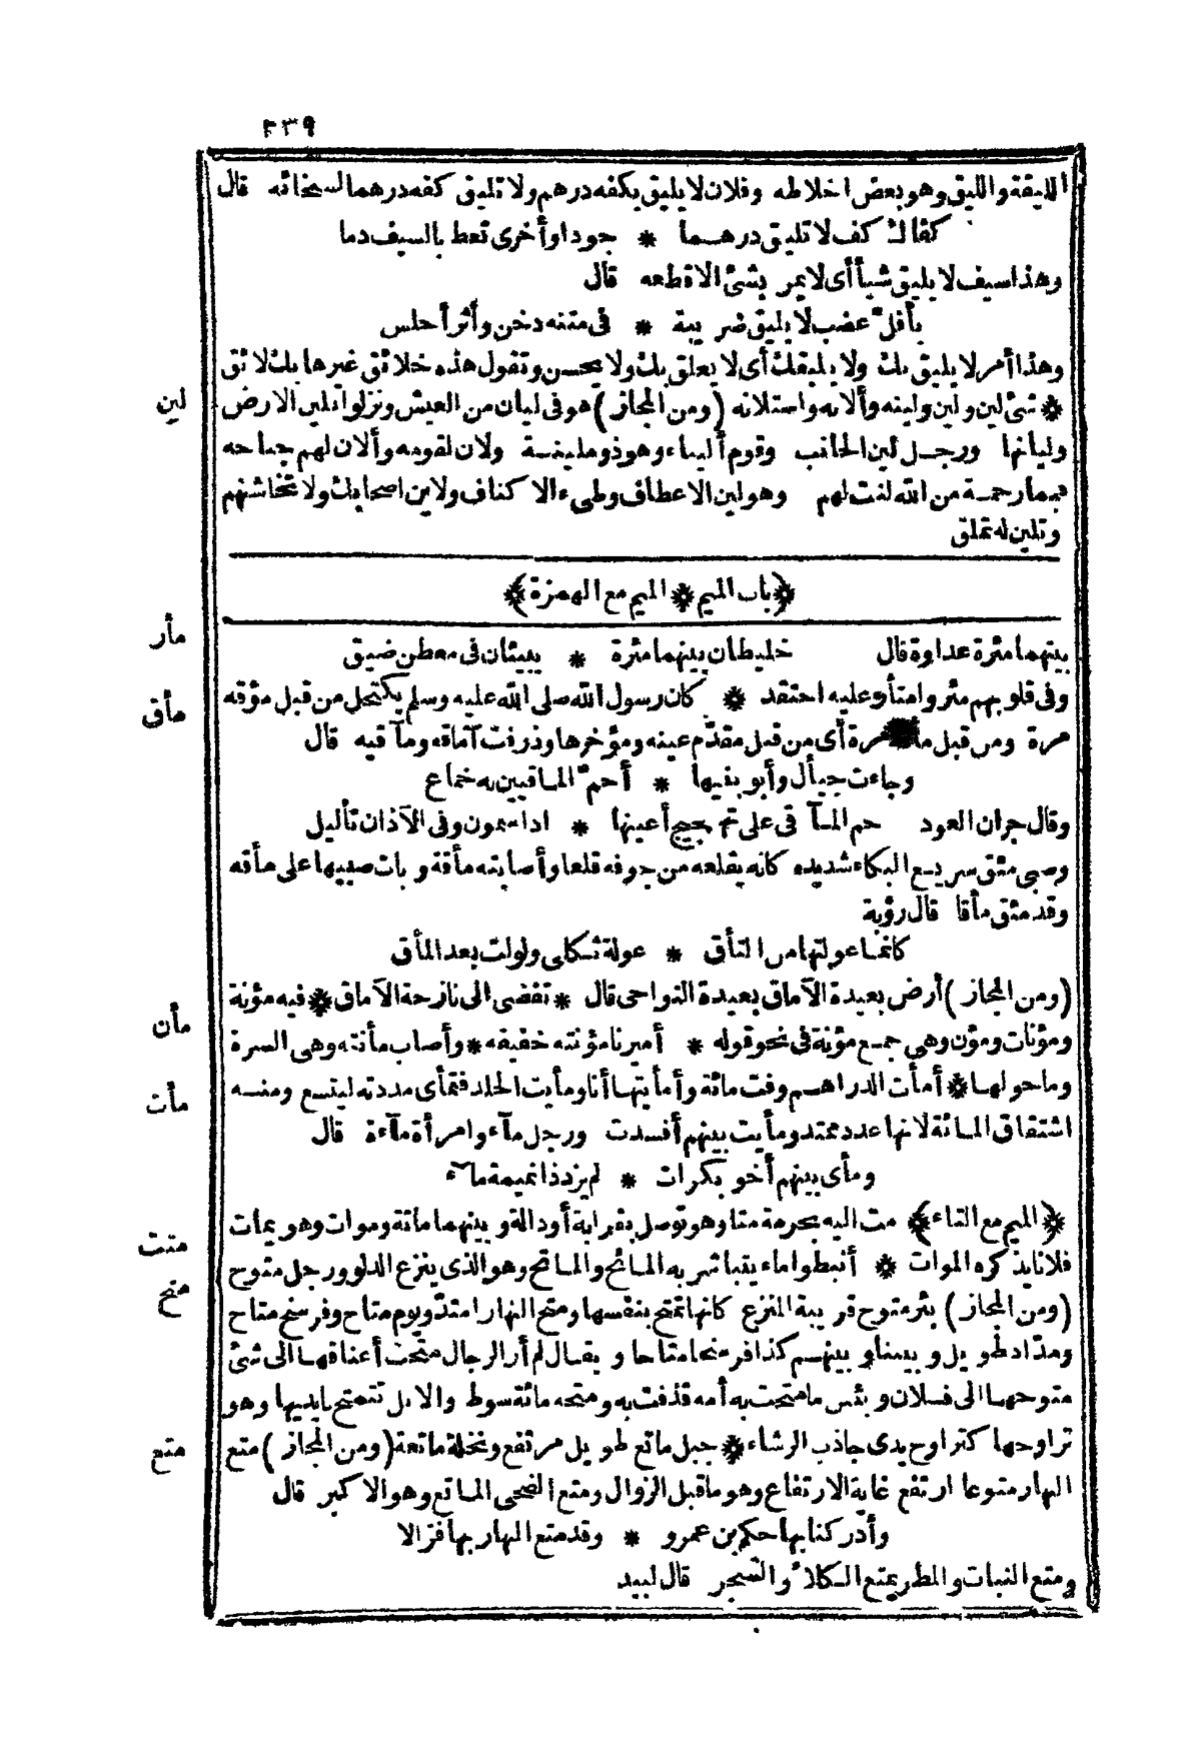 ٢٣٩
الليقة والليق وهو بعض اخلاطه وفلان لا يليق بكفه درهم ولا تليق كفه درهما لسخائه قال
كفاك كف لا تليق درهما * جودا وأخرى تعط بالسيف دما
وهذا سيف لا يليق شيأ أى لا يمر بشئ الا قطعه قال
بأفل عضب لا يليق ضريبة * فى متنه دخن وأثر أحلس
وهذا أمر لا يليق بك ولا يليقك أى لا يعلق بك ولا يحسن وتقول هذه خلائق غيرها بك لائق
لين
* شئ لين ولين ولينه وألانه واستلانه (ومن المجاز) هو فى ليان من العيش ونزلوا بلين الارض
وليانها ورجل لين الجانب وقوم أليناء وهو ذو ملينة ولان لقومه وألان لهم جناحه
فبما رحمة من الله لنت لهم وهو لين الاعطاف وطىء الاكناف ولاين اصحابك ولا تخاشنهم
وتلين له تملق
﴿باب الميم * الميم مع الهمزة﴾
مأر
بينهما مئرة عداوة قال خليطان بينهما مئرة * يبيتان فى معطن ضيق
مأق
وفى قلوبهم مئر وامتأر عليه احتقد * كان رسول الله صلى الله عليه وسلم يكتحل من قبل مؤقه
مرة ومن قبل مأ مرة أى من قبل مقدم عينه ومؤخرها وذرفت آماقه ومآقيه قال
وجاءت جيأل وأبو بنيها * أحم الماقيين به خماع
وقال جران العود حم المآقى على تهجيج أعينها * اذا سمون وفى الآذان تأليل
وصبى مئق سريع البكاء شديده كانه يقلعه من جوفه قلعا وأصابته مأقة وبات صبيها على مأقه
وقد مئق مأقا قال رؤبة
كانما عولتها من التأق * عولة ثكلى ولولت بعد المأق
(ومن المجاز) أرض بعيدة الآماق بعيدة النواحى قال * تفضى الى نازحة الآماق * فيه مؤنة
مأن
ومؤنات ومؤن وهى جمع مؤنة فى نحو قوله * أميرنا مؤنته خفيفه * وأصاب مأنته وهى السرة
مأت
وما حولها * أمأت الدراهم وفت مائة وأمأيتها أنا ومأيت الجلد فتمأى مددته ليتسع ومنه
اشتقاق المائة لانها عدد ممتد ومأيت بينهم أفسدت ورجل مآء وامرأة مآءة قال
ومأى بينهم أخو بكرات * لم يزد ذا نميمة ماء
متت
﴿الميم مع التاء﴾ مت اليه بحرمة متا وهو توصل بقرابة أو دالة وبينهما ماتة وموات وهو يمات
فلانا يذكره الموات * أنبطوا ماء يتباشر به المائح والماتح وهو الذى ينزع الدلو ورجل متوح
متح
(ومن المجاز) بئر متوح قريبة المنزع كانها تمتح بنفسها ومتح النهار امتد ويوم متاح وفرسخ متاح
ومداد طويل وبيننا وبينهم كذا فرسخا متاحا ويقال لم أر الرجال متحت أعناقها الى شئ
متوحها الى فلان وبئس ما متحت به أمه قذفت به ومتحه مائة سوط والابل تتمتح بايديها وهو
متع
تراوحها كتراوح يدى جاذب الرشاء * جبل ماتع طويل مرتفع ونخلة ماتعة (ومن المجاز) متع
النهار متوعا ارتفع غاية الارتفاع وهو ما قبل الزوال ومتع الضحى الماتع وهو الاكبر قال
وأدركنا بها حكم بن عمرو * وقد متع النهار بها فزالا
ومتع النبات والمطر يمتع الكلأ والشجر قال لبيد